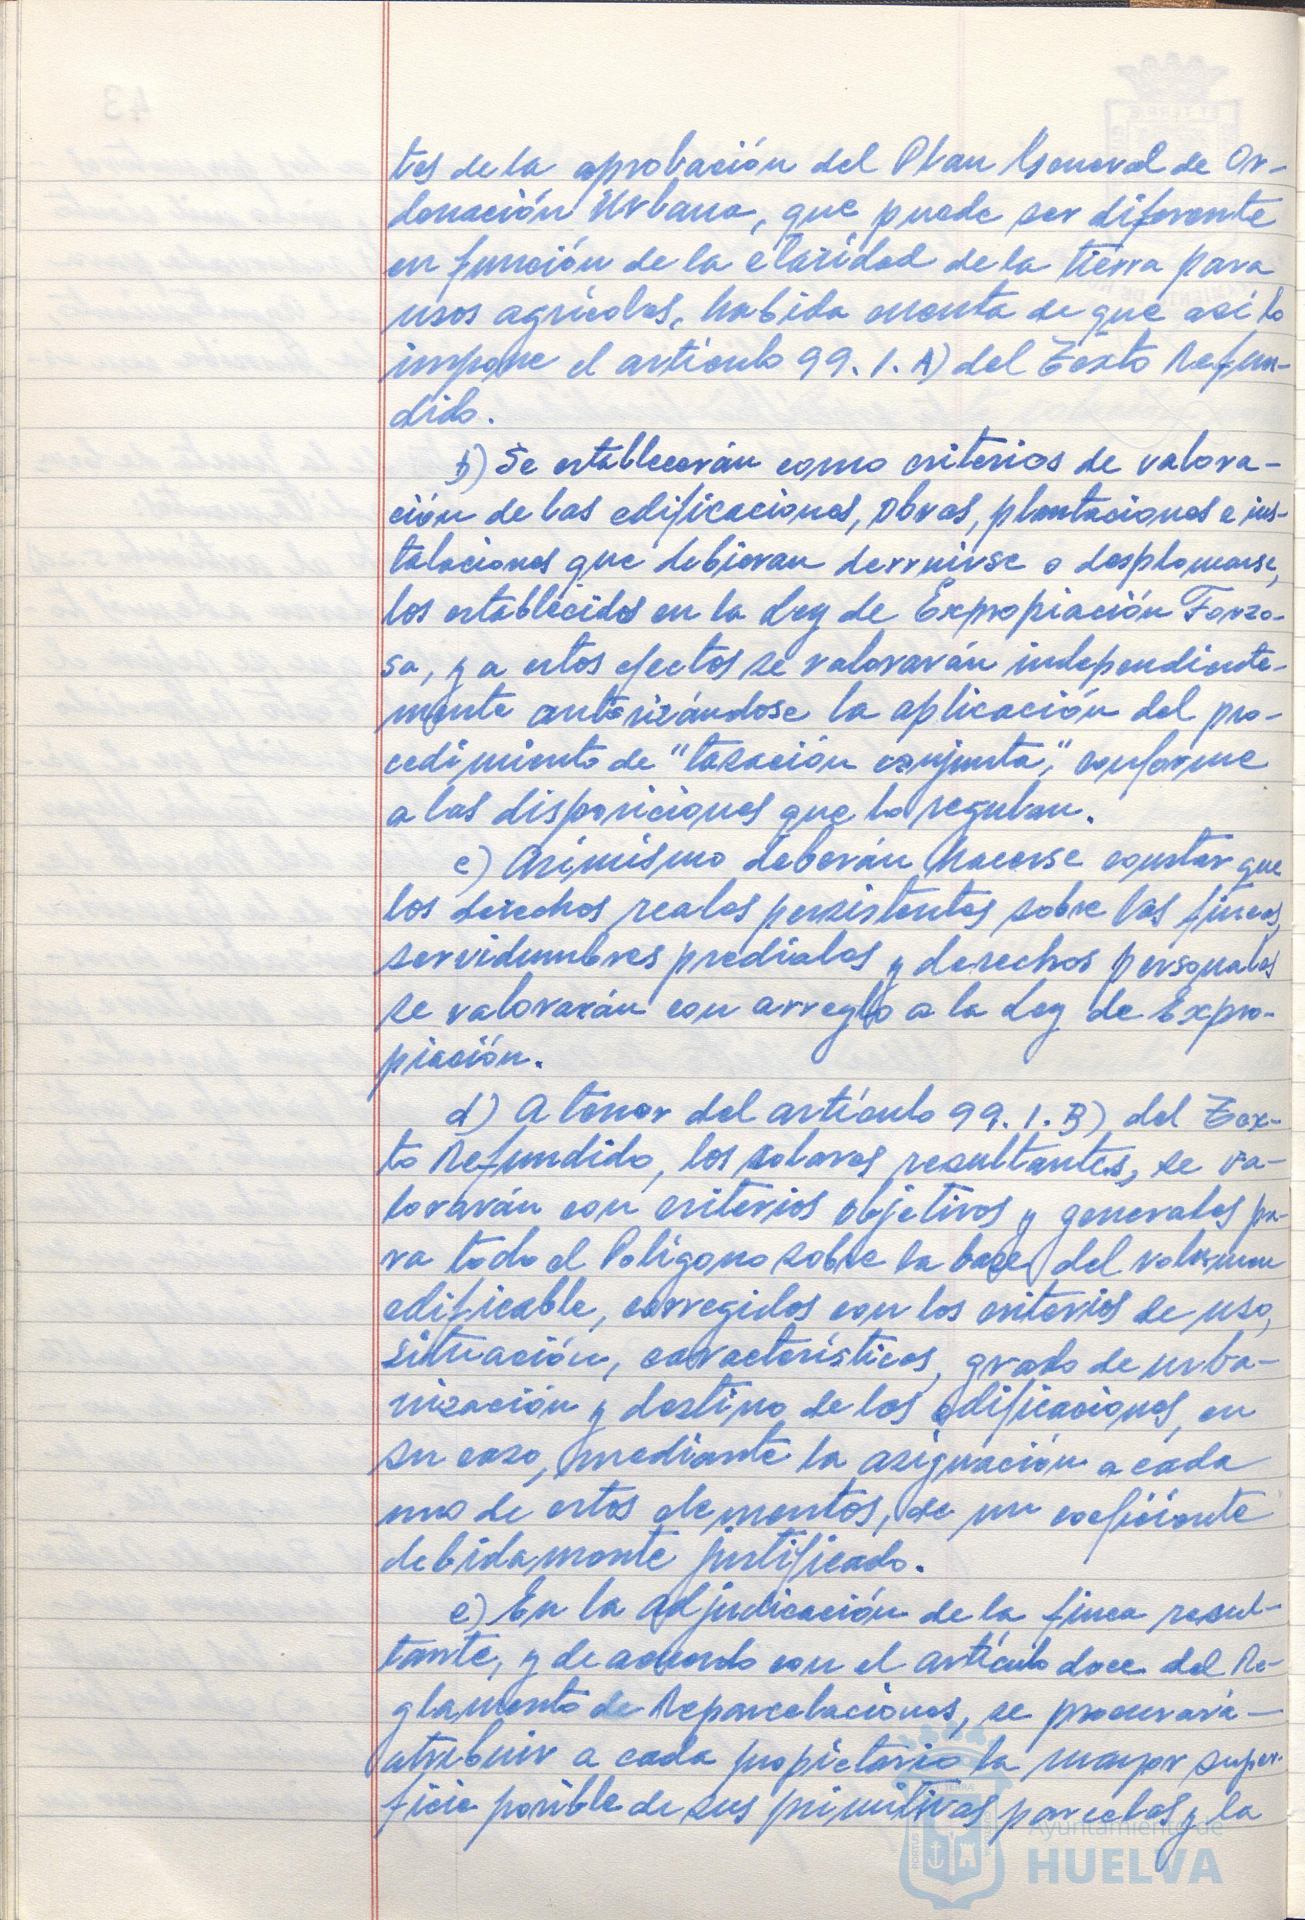 tes de la aprobación del Plan General de Or-
denación Urbana, que puede ser diferente
en función de la claridad de la tierra para
usos agrícolas, habida cuenta de que así lo
impone el artículo 99.1.A) del Texto Refun-
dido.
b) Se establecerán como criterios de valora-
ción de las edificaciones, obras, plantaciones e ins-
talaciones que debieran derruirse o desplomarse,
los establecidos en la Ley de Expropiación Forzo-
sa, y a estos efectos se valorarán independiente-
mente autorizándose la aplicación del pro-
cedimiento de "tasación conjunta", conforme
a las disposiciones que lo regulan.
c) Asimismo deberán hacerse constar que
los derechos reales persistentes sobre las fincas,
servidumbres prediales y derechos personales
se valorarán con arreglo a la Ley de Expro-
piación.
d) A tenor del artículo 99.1.B) del Tex-
to Refundido, los solares resultantes, se va-
lorarán con criterios objetivos y generales pa-
ra todo el Polígono sobre la base del volumen
edificable, corregidos con los criterios de uso,
situación, características, grado de urba-
nización y destino de las edificaciones, en
su caso, mediante la asignación a cada
uno de estos elementos, de un coeficiente
debidamente justificado.
e) En la adjudicación de la finca resul-
tante, y de acuerdo con el artículo doce del Re-
glamento de Reparcelaciones, se procurará
atribuir a cada propietario la mayor super-
ficie posible de sus primitivas parcelas y la
Ayuntamiento de
HUELVA
43